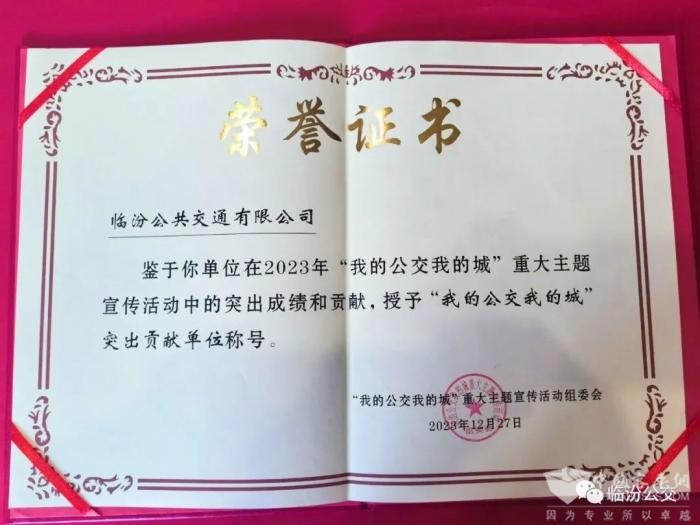 荣誉证书
临汾公共交通有限公司
鉴于你单位在2023年“我的公交我的城”重大主题
宣传活动中的突出成绩和贡献，授予“我的公交我的城”
突出贡献单位称号。
“我的公交我的城”重大主题宣传活动组委会
2023年12月27日
临汾公交
因为专业所以卓越